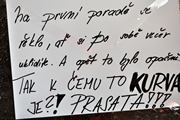 na první poradě se
řeklo, ať si po sobě večer
uklidíte. A opět to bylo opačně
TAK K ČEMU TO KURVA
JE?! PRASATA!!!